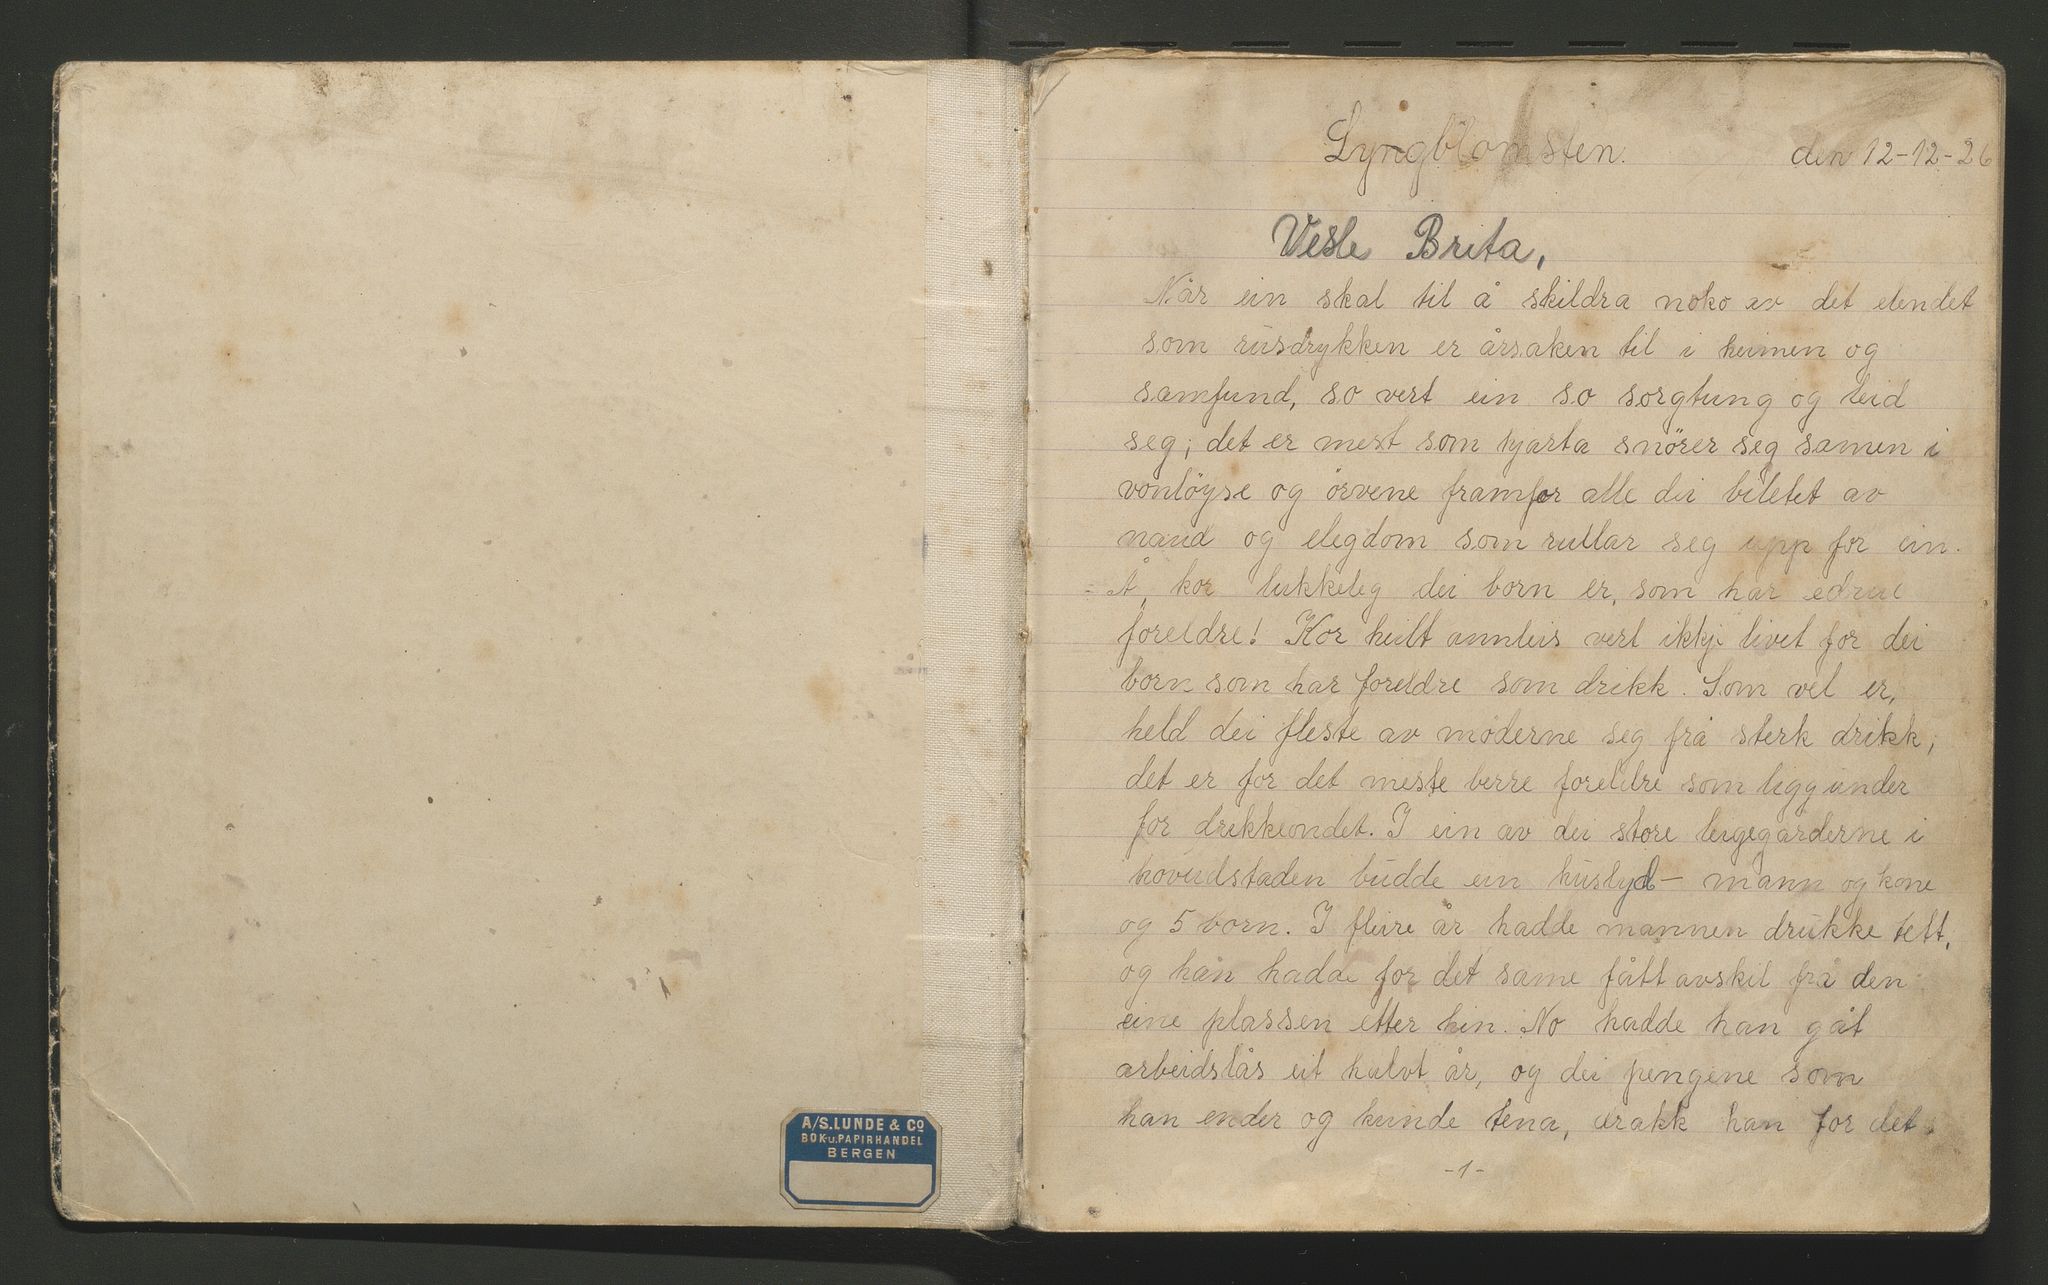 A/S. LUNDE & Co
BOK- u. PAPIRHANDEL
BERGEN
Lyngblomsten. den 12-12-26
Vesle Brita,
Når ein skal til å skildra noko av det elendet
som rusdrykken er årsaken til i heimen og
samfund, so vert ein so sorgtung og leid
seg; det er mest som hjarta snörer seg samen i
vonlöyse og örvene framfor alle dei biletet av
naud og elegdom som rullar seg upp for ein.
Å, kor lukkeleg dei born er, som har edrue
foreldre! Kor heilt annleis vert ikkje livet for dei
born som har foreldre som drikk. Som vel er,
held dei fleste av möderne seg frå sterk drikk;
det er for det meste berre foreldre som ligg under
for drikkeondet. I ein av dei store leigegårderne i
hovudstaden budde ein huslyd - mann og kone
og 5 born. I fleire år hadde mannen drukke tett,
og han hadde for det same fått avskil frå den
eine plassen etter hin. No hadde han gåt
arbeidslås eit halvt år, og dei pengene som
han ender og kunde tena, drakk han for det.
-1-